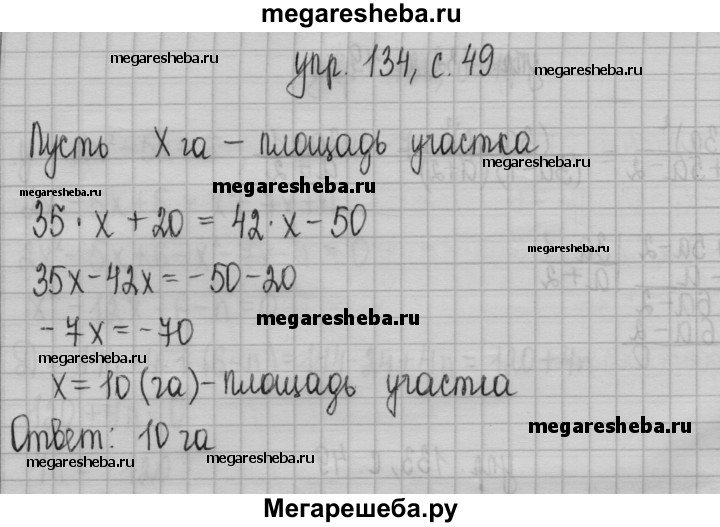 megaresheba.ru
megaresheba.ru
упр. 134, с. 49
megaresheba.ru
Пусть х га – площадь участка
megaresheba.ru
megaresheba.ru
megaresheba.ru
35 · х + 20 = 42 · х – 50
megaresheba.ru
35х – 42х = – 50 – 20
megaresheba.ru
– 7х = – 70
megaresheba.ru
х = 10 (га) – площадь участка
Ответ: 10 га
megaresheba.ru
megaresheba.ru
megaresheba.ru
Мегарешеба.ру